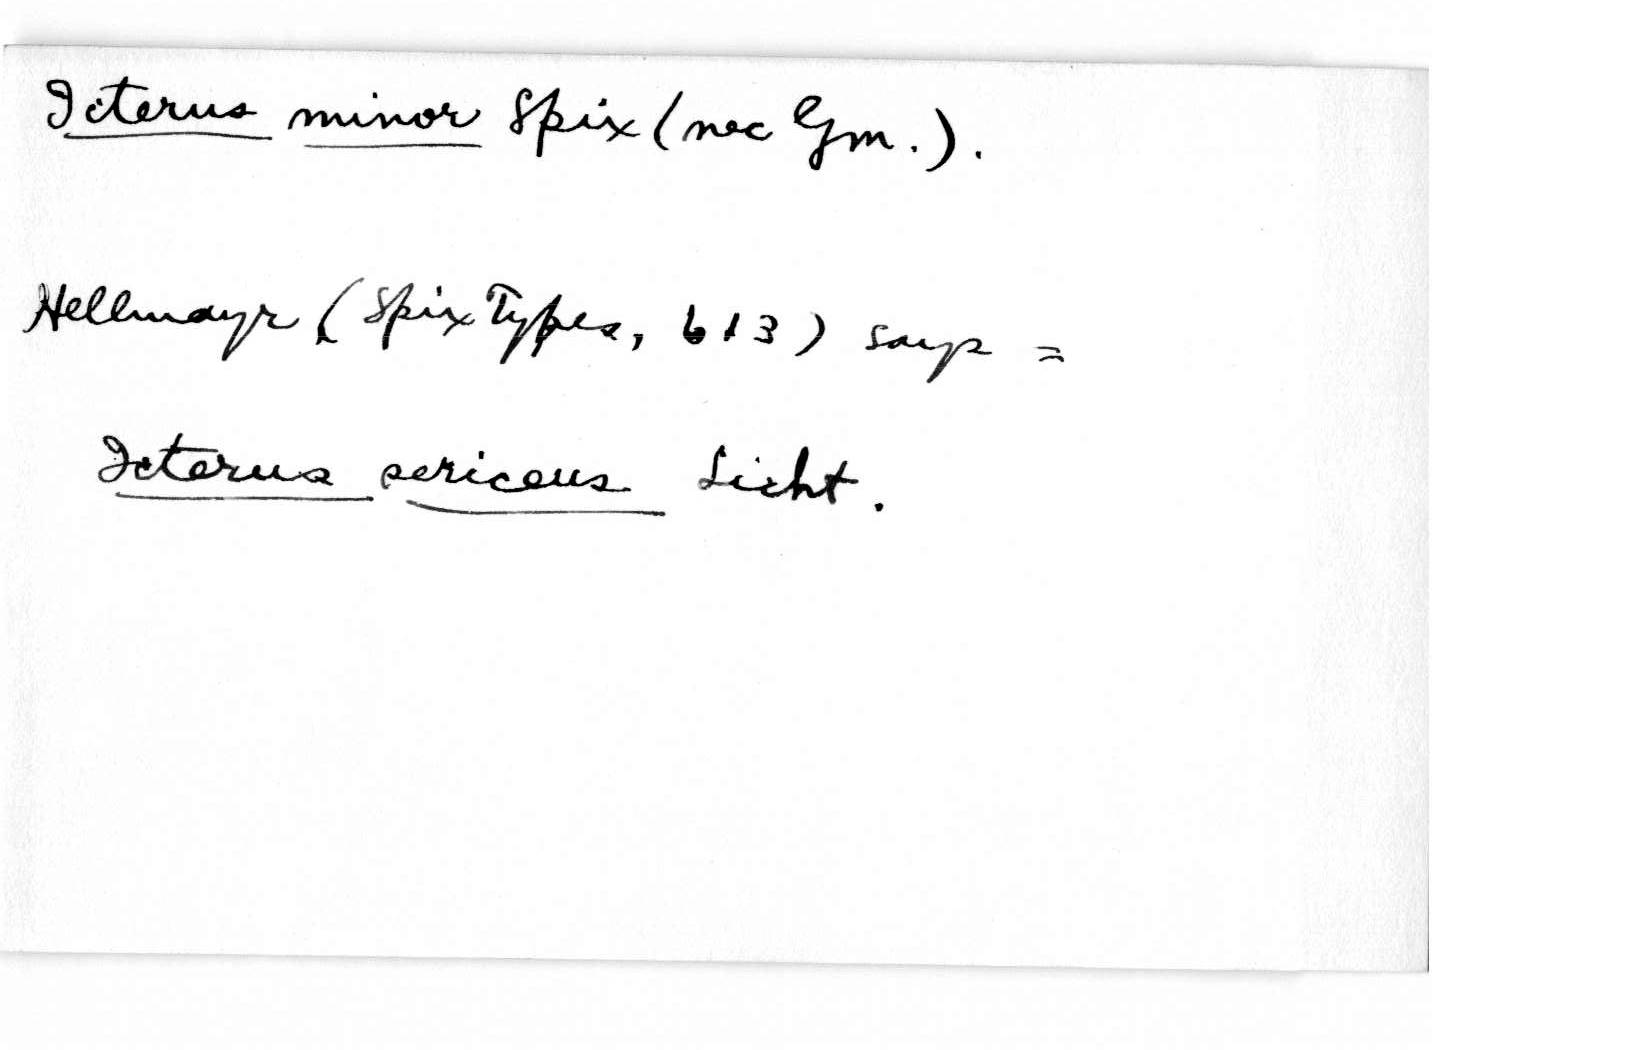 Icterus minor Spix (nec Gm.).
Hellmayr (Spix Types, 613) says =
Icterus sericeus Licht.